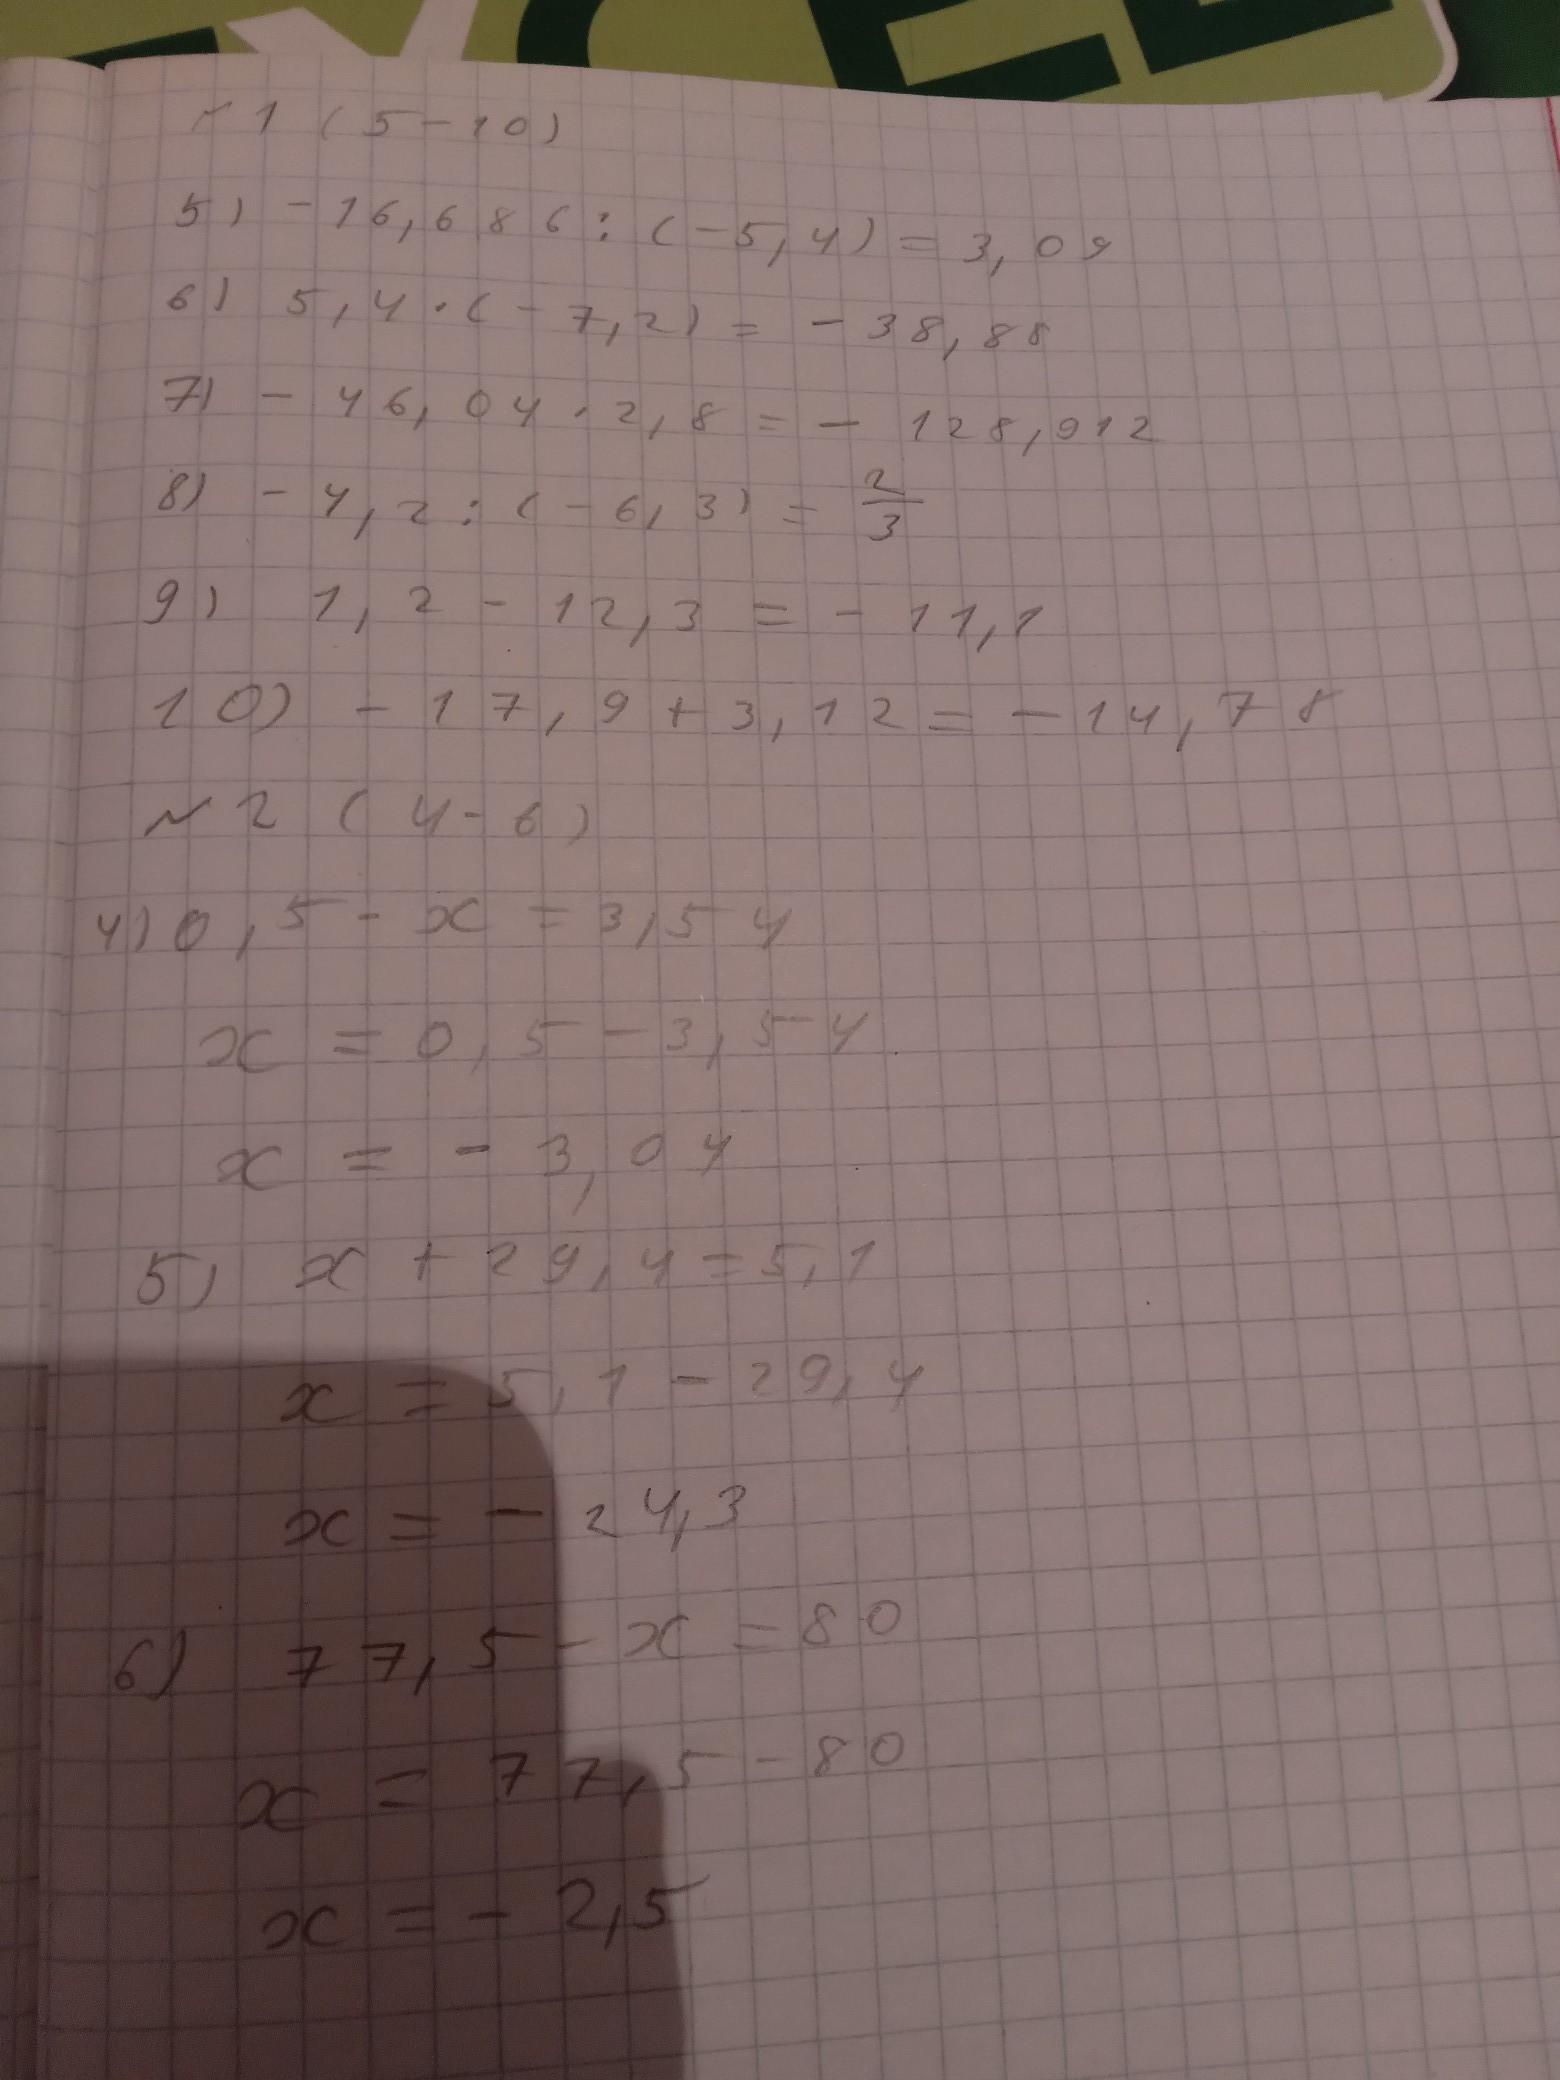 №1 (5-10)
5) -16,686:(-5,4)=3,09
6) 5,4·(-7,2)=-38,88
7) -46,04·2,8=-128,912
8) -4,2:(-6,3)=2/3
9) 1,2-12,3=-11,1
10) -17,9+3,12=-14,78
№2 (4-6)
4) 0,5-x=3,54
x=0,5-3,54
x=-3,04
5) x+29,4=5,1
x=5,1-29,4
x=-24,3
6) 77,5-x=80
x=77,5-80
x=-2,5